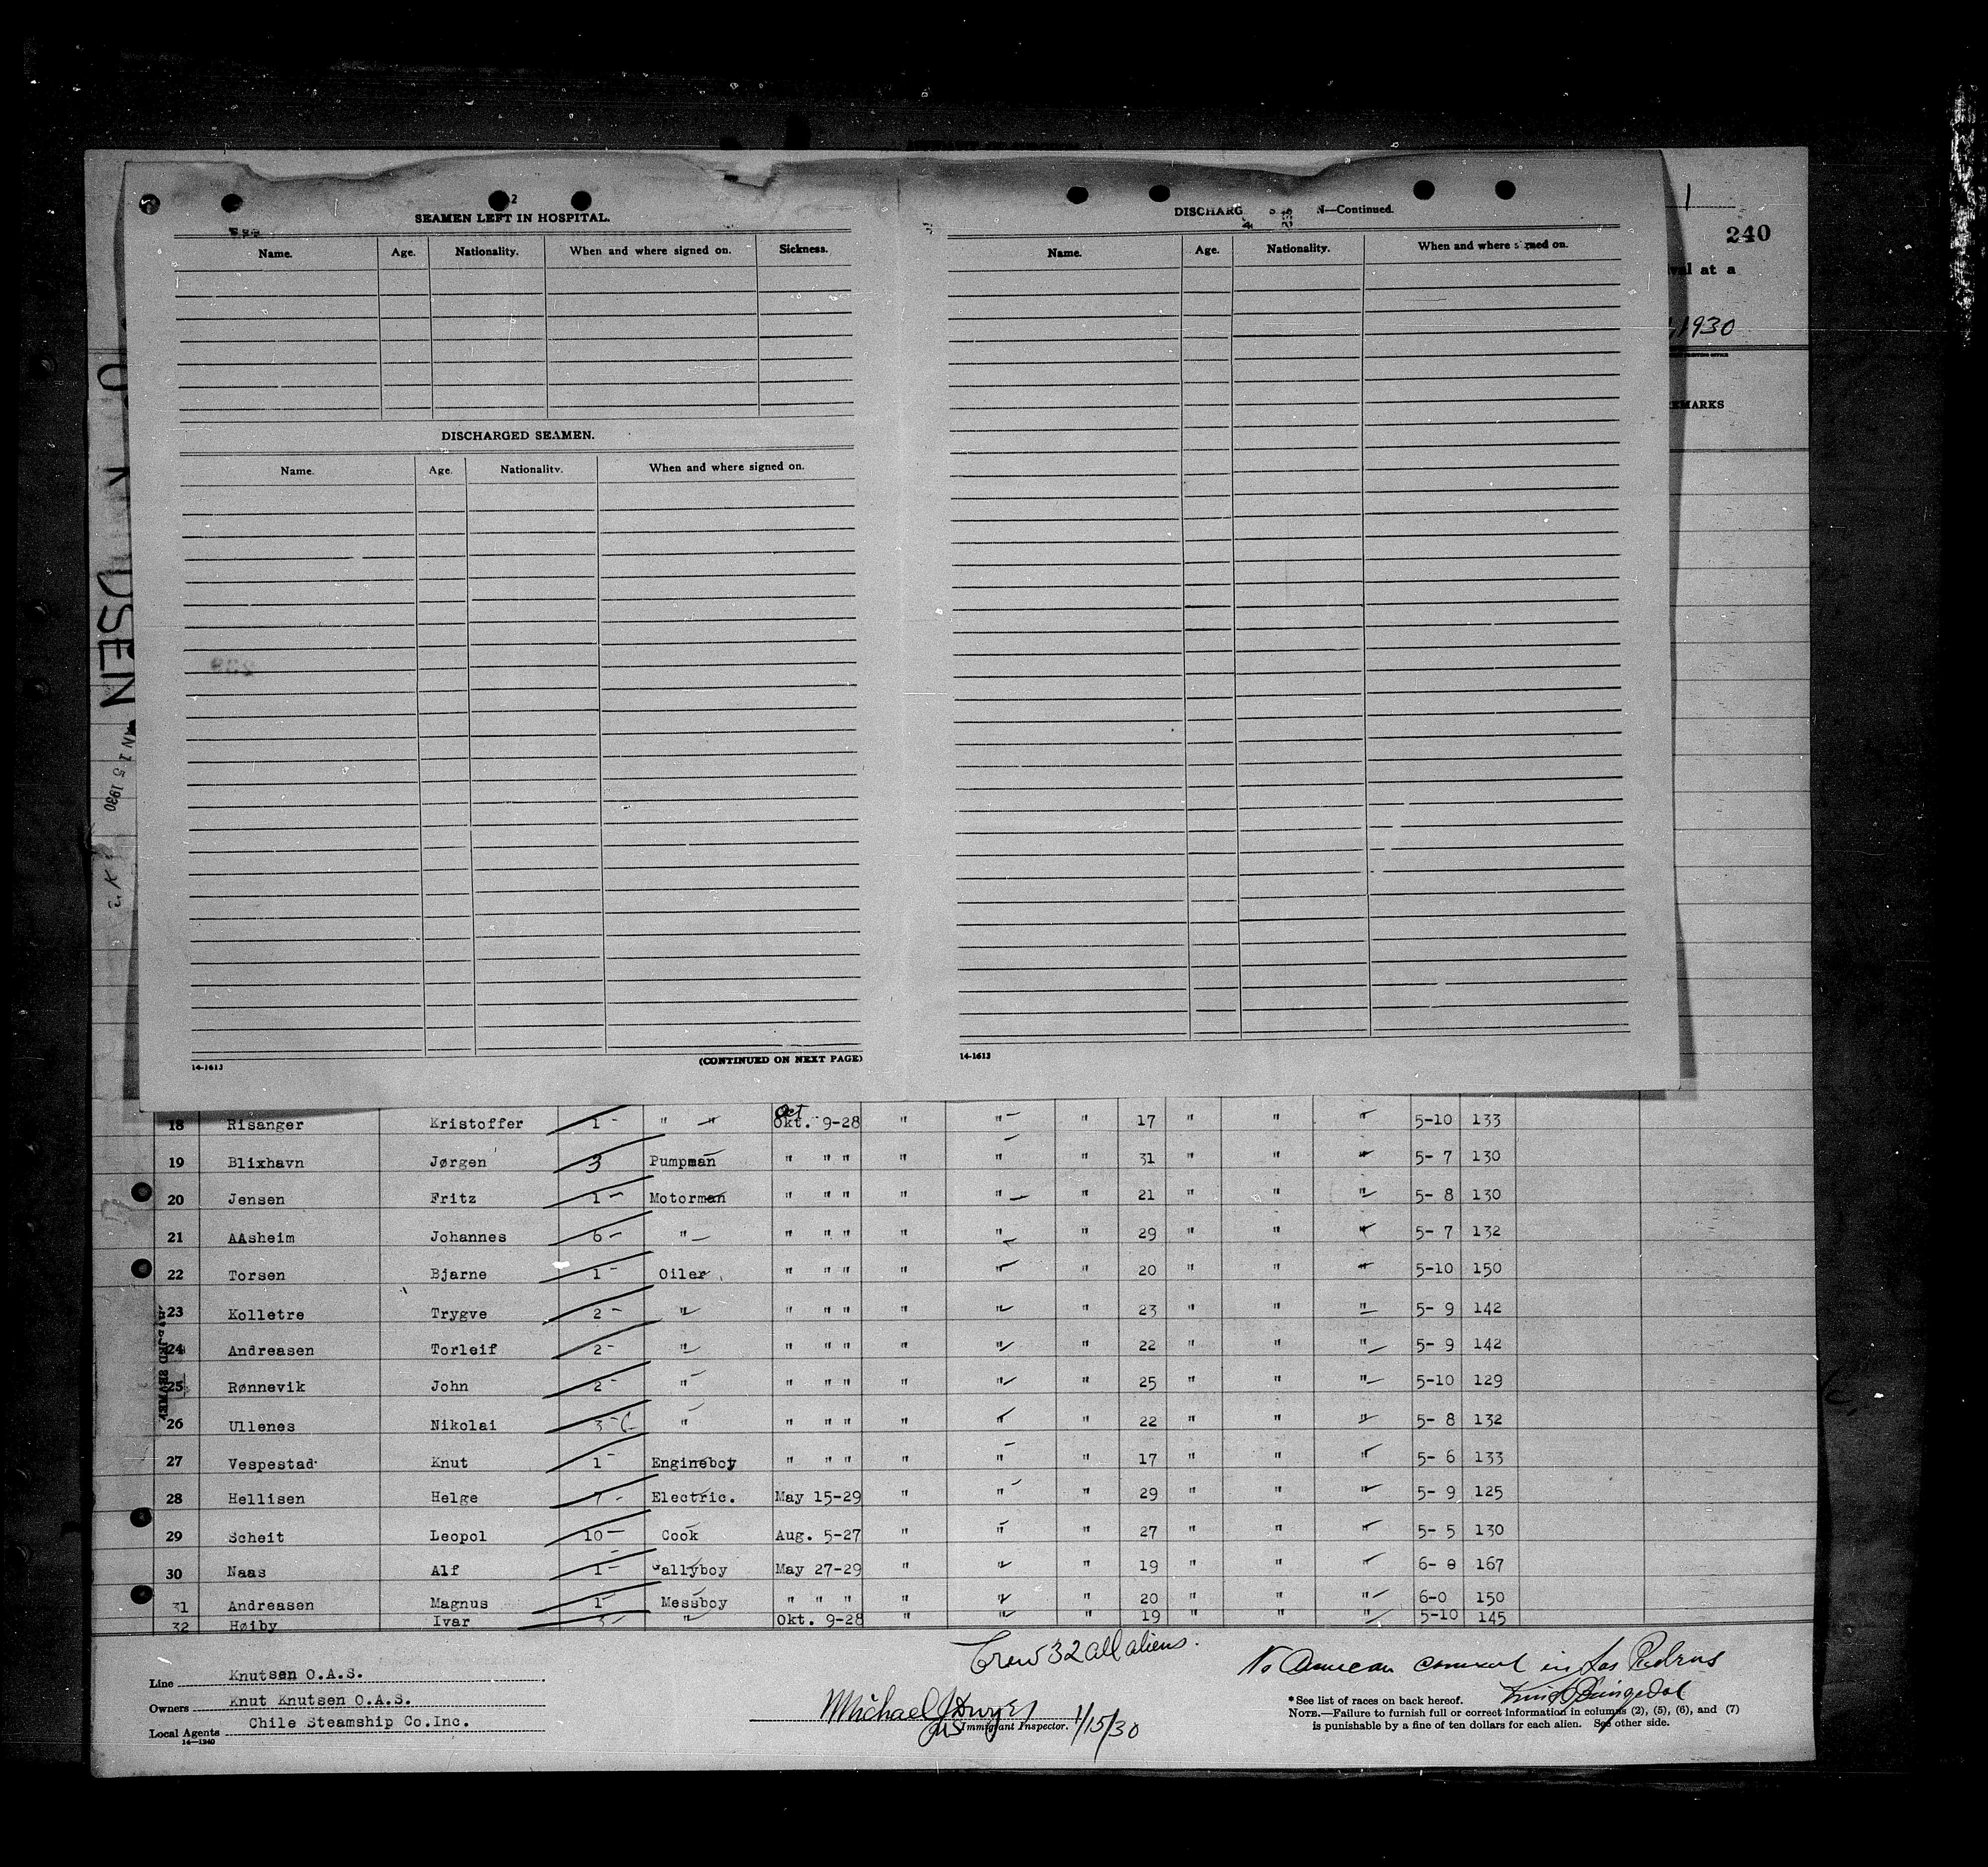 2
SEAMEN LEFT IN HOSPITAL.
Name. Age. Nationality. When and where signed on. Sickness.
DISCHARGED SEAMEN.
Name. Age. Nationality. When and where signed on.
14-1613 (CONTINUED ON NEXT PAGE)
DISCHARG N—Continued.
Name. Age. Nationality. When and where signed on.
14-1613
240
val at a
1930
EMARKS
DSEN
JAN 15 1930
18 Risanger Kristoffer 1 - " " Oct Okt. 9-28 " " " 17 " " " 5-10 133
19 Blixhavn Jørgen 3 Pumpman " " " " " " 31 " " " 5- 7 130
20 Jensen Fritz 1 - Motorman " " " " " " 21 " " " 5- 8 130
21 AAsheim Johannes 6 - " " " " " " " 29 " " " 5- 7 132
22 Torsen Bjarne 1 - Oiler " " " " " " 20 " " " 5-10 150
23 Kolletre Trygve 2 - " " " " " " " 23 " " " 5- 9 142
24 Andreasen Torleif 2 - " " " " " " " 22 " " " 5- 9 142
25 Rønnevik John 2 - " " " " " " " 25 " " " 5-10 129
26 Ullenes Nikolai 3 - " " " " " " " 22 " " " 5- 8 132
27 Vespestad Knut 1 - Engineboy " " " " " " 17 " " " 5- 6 133
28 Hellisen Helge 7 - Electric. May 15-29 " " " 29 " " " 5- 9 125
29 Scheit Leopol 10 - Cook Aug. 5-27 " " " 27 " " " 5- 5 130
30 Naas Alf 1 - Gallyboy May 27-29 " " " 19 " " " 6- 0 167
31 Andreasen Magnus 1 - Messboy " " " " " " 20 " " " 6-0 150
32 Høiby Ivar 3 - " Okt. 9-28 " " " 19 " " " 5-10 145
Crew 32 all aliens.
Line Knutsen O.A.S.
Owners Knut Knutsen O.A.S.
Local Agents Chile Steamship Co.Inc.
14—1240
Michael J Dwyer
Immigrant Inspector. 1/15/30
No American consul in Las Piedras
*See list of races on back hereof.
NOTE.—Failure to furnish full or correct information in columns (2), (5), (6), and (7)
is punishable by a fine of ten dollars for each alien. See other side.